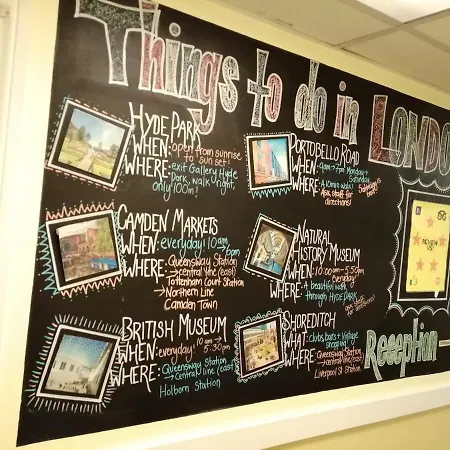 Things to do in LONDO
HYDE PARK
WHEN: open from sunrise to sun set!
WHERE: exit Gallery Hyde Park, walk right, only 100m!
PORTOBELLO ROAD
WHEN: 9am - 7pm Monday - Saturday
WHERE: A 10min walk! Ask staff for directions!
CAMDEN MARKETS
WHEN: everyday! 10am 6pm
WHERE: Queensway Station
→ central line (east)
Tottenham Court Station
→ Northern Line
Camden Town
NATURAL
HISTORY MUSEUM
WHEN: 10:00am - 5:50pm everyday!
WHERE: A beautiful walk through HYDE PARK
BRITISH MUSEUM
WHEN: everyday! 10am → 5:30pm
WHERE: Queensway Station
→ central line (east)
Holborn Station
SHOREDITCH
WHAT: clubs, bars + vintage shopping!
WHERE: Queensway Station
→ central line (east)
Liverpool St Station
REVIEW US
Reception